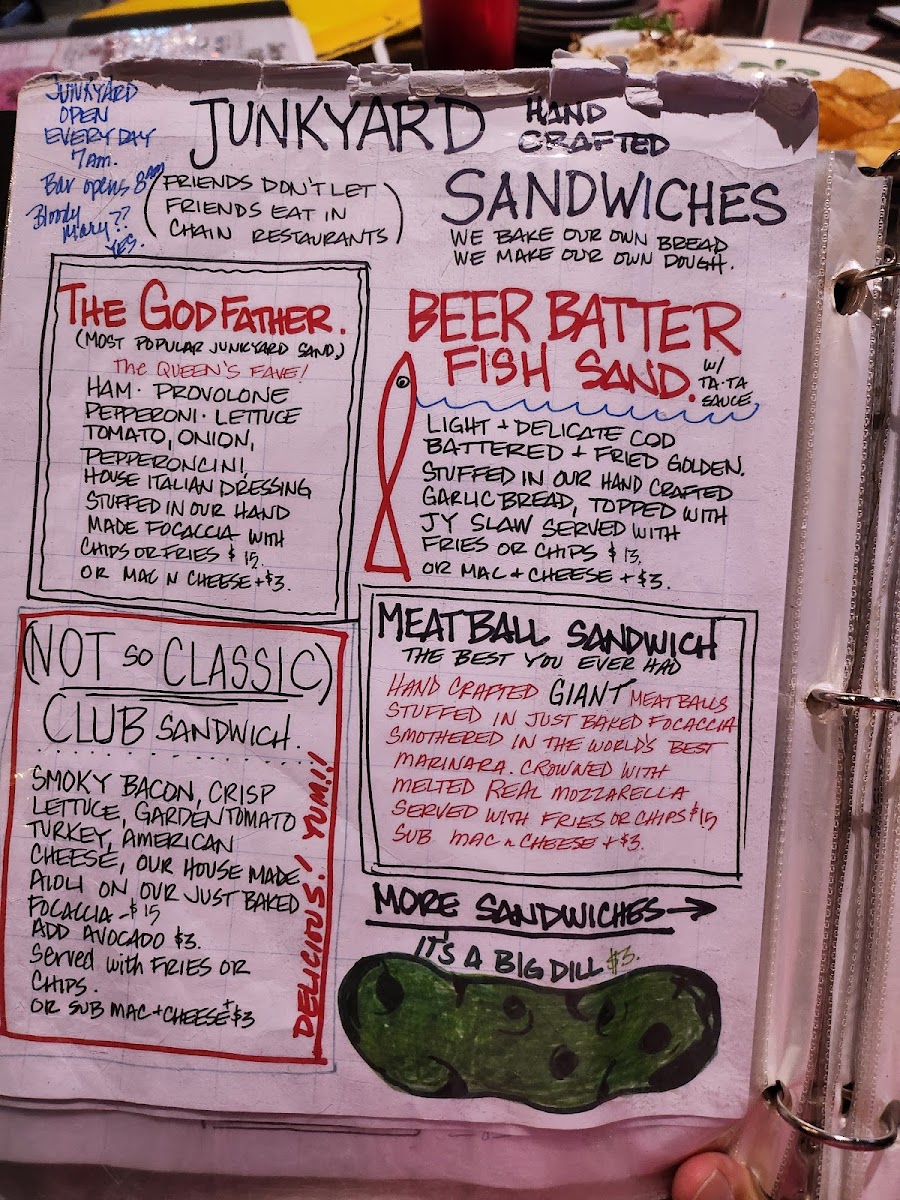 JUNKYARD
OPEN
EVERYDAY
7AM.
Bar opens 8AM
Bloody
Mary??
YES.
JUNKYARD
HAND
CRAFTED
SANDWICHES
(FRIENDS DON'T LET
FRIENDS EAT IN
CHAIN RESTAURANTS)
WE BAKE OUR OWN BREAD
WE MAKE OUR OWN DOUGH.
THE GODFATHER.
(MOST POPULAR JUNKYARD SAND.)
The QUEEN'S FAVE!
HAM · PROVOLONE
PEPPERONI · LETTUCE
TOMATO, ONION,
PEPPERONCINI,
HOUSE ITALIAN DRESSING
STUFFED IN OUR HAND
MADE FOCACCIA WITH
CHIPS OR FRIES $15.
OR MAC N CHEESE +$3.
BEER BATTER
FISH SAND.
W/
TA·TA
SAUCE
LIGHT + DELICATE COD
BATTERED + FRIED GOLDEN.
STUFFED IN OUR HAND CRAFTED
GARLIC BREAD, TOPPED WITH
JY SLAW SERVED WITH
FRIES OR CHIPS $15.
OR MAC + CHEESE +$3.
(NOT SO CLASSIC)
CLUB SANDWICH.
SMOKY BACON, CRISP
LETTUCE, GARDEN TOMATO
TURKEY, AMERICAN
CHEESE, OUR HOUSE MADE
AIOLI ON OUR JUST BAKED
FOCACCIA - $15
ADD AVOCADO $3.
Served with FRIES OR
CHIPS.
OR SUB MAC + CHEESE +$3
DELICIOUS! YUM!!
MEATBALL SANDWICH
THE BEST YOU EVER HAD
HAND CRAFTED GIANT MEATBALLS
STUFFED IN JUST BAKED FOCACCIA
SMOTHERED IN THE WORLD'S BEST
MARINARA. CROWNED WITH
MELTED REAL MOZZARELLA
SERVED WITH FRIES OR CHIPS $15
SUB. MAC N CHEESE +$3.
MORE SANDWICHES→
IT'S A BIG DILL $3.